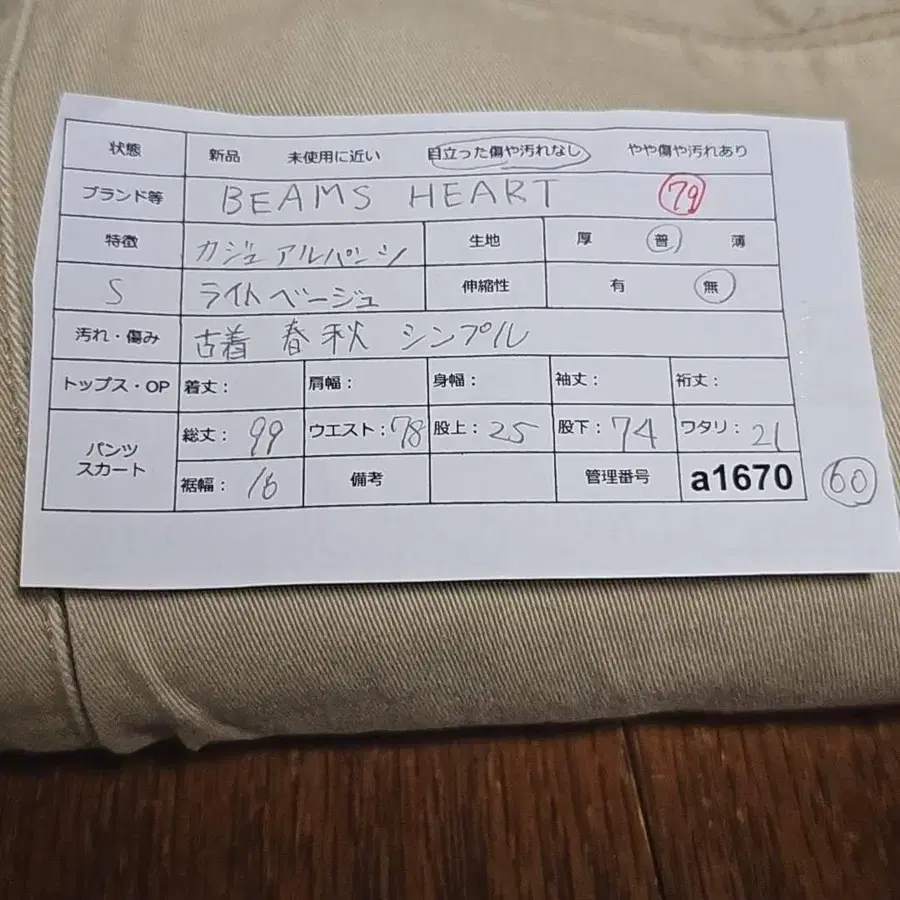 状態 新品 未使用に近い 目立った傷や汚れなし やや傷や汚れあり
ブランド等 BEAMS HEART 79
特徴 カジュアルパンツ 生地 厚 普 薄
S ライトベージュ 伸縮性 有 無
汚れ・傷み 古着 春秋 シンプル
トップス・OP 着丈： 肩幅： 身幅： 袖丈： 裄丈：
パンツ スカート 総丈：99 ウエスト：78 股上：25 股下：74 ワタリ：21
裾幅：16 備考 管理番号 a1670 60